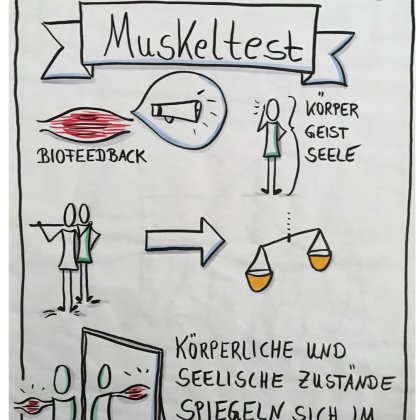 MUSKELTEST
BIOFEEDBACK
KÖRPER
GEIST
SEELE
KÖRPERLICHE UND
SEELISCHE ZUSTÄNDE
SPIEGELN SICH IM